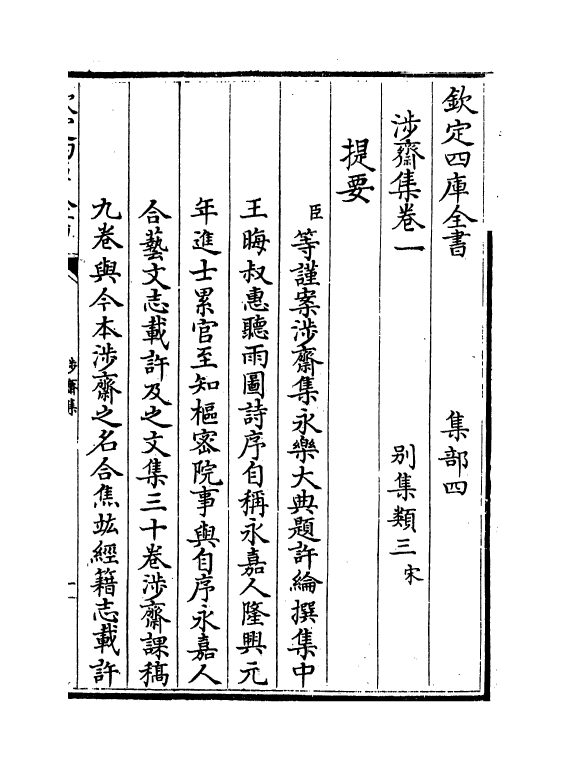 欽定四庫全書　　集部四
涉齋集卷一　　別集類三宋
提要
臣等謹案涉齋集永樂大典題許綸撰集中
王晦叔惠聽雨圖詩序自稱永嘉人隆興元
年進士累官至知樞密院事與自序永嘉人
合藝文志載許及之文集三十卷涉齋課稿
九卷與今本涉齋之名合焦竑經籍志載許
涉齋集
一